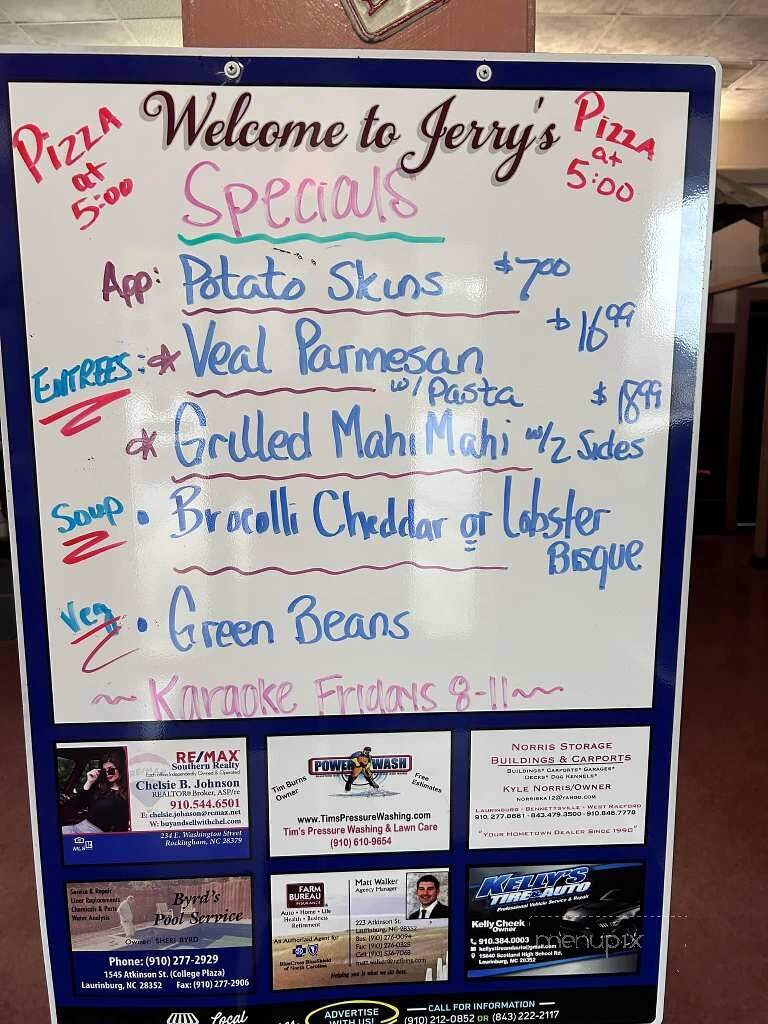 Welcome to Jerry's
Pizza
at
5:00
Pizza
at
5:00
Specials
App: Potato Skins $7.00
Entrees: * Veal Parmesan $16.99
w/ Pasta
* Grilled Mahi Mahi w/2 Sides $18.99
Soup • Brocolli Cheddar or Lobster
Bisque
Veg • Green Beans
~ Karaoke Fridays 8-11 ~
RE/MAX
Southern Realty
Each office Independently Owned & Operated
Chelsie B. Johnson
REALTOR® Broker, ASP/re
910.544.6501
E: chelsie.johnson@remax.net
W: buyandsellwithchel.com
234 E. Washington Street
Rockingham, NC 28379
POWER WASH
Tim Burns
Owner
Free
Estimates
www.TimsPressureWashing.com
Tim's Pressure Washing & Lawn Care
(910) 610-9654
Norris Storage
Buildings & Carports
Buildings* Carports* Garages*
Decks* Dog Kennels*
Kyle Norris/Owner
norriska12@yahoo.com
Laurinburg - Bennettsville - West Raeford
910.277.8681 - 843.479.3500 - 910.848.7778
"Your Hometown Dealer Since 1990"
Service & Repair
Liner Replacements
Chemicals & Parts
Water Analysis
Byrd's
Pool Service
Owner: SHERI BYRD
Phone: (910) 277-2929
1545 Atkinson St. (College Plaza)
Laurinburg, NC 28352 Fax: (910) 277-2906
FARM
BUREAU
INSURANCE
Auto • Home • Life
Health • Business
Retirement
An Authorized Agent for
BlueCross BlueShield
of North Carolina
Matt Walker
Agency Manager
223 Atkinson St.
Laurinburg, NC 28352
Bus: (910) 276-0094
Fax: (910) 276-0325
Helping you is what we do best.
KELLY'S
TIRE & AUTO
Professional Vehicle Service & Repair
Kelly Cheek
Owner
910.384.0003
kellystireandauto@gmail.com
15840 Scotland High School Rd,
Laurinburg, NC 28352
menupix
Local
ADVERTISE
WITH US!
CALL FOR INFORMATION
(910) 212-0852 OR (843) 222-2117